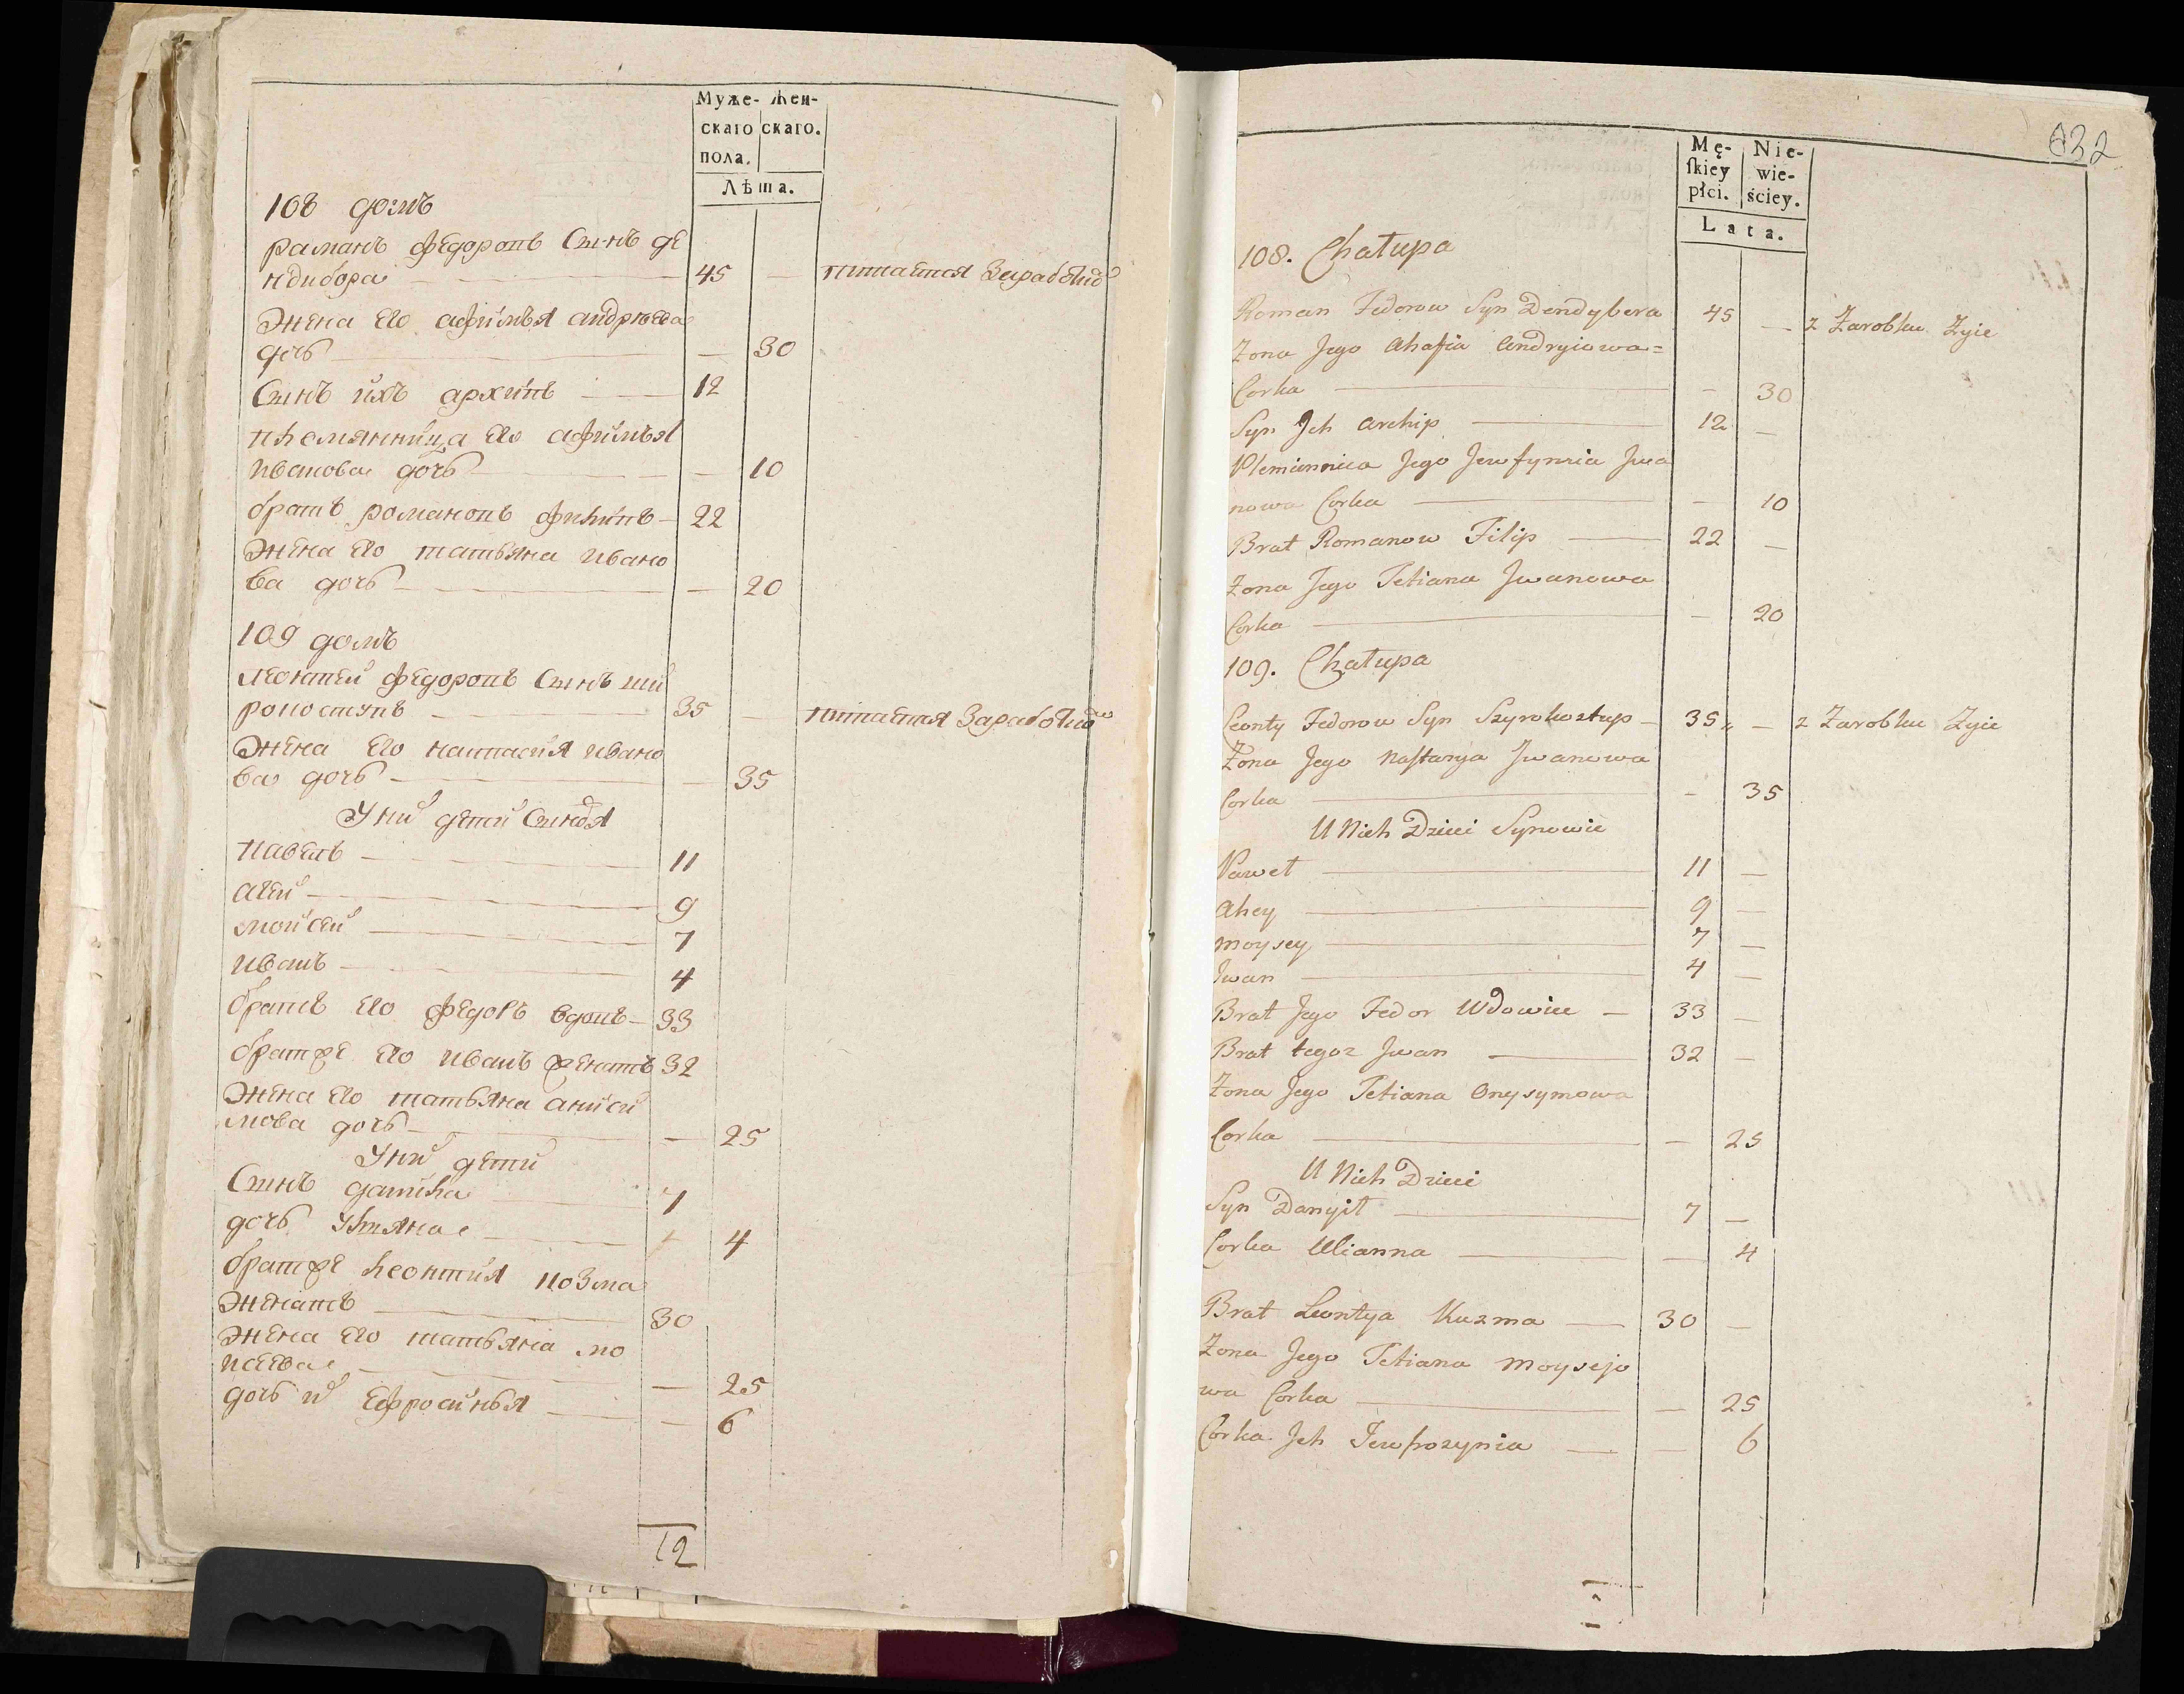 Муже- Жен-
скаго скаго.
пола.
Лѣта.
108 домъ
раманъ федоровъ Сынъ де
ндибора 45 — питается Заработко
Жена его афимья андреева
дочь — 30
Сынъ ихъ архипъ 12
племянница его афимья
Иванова дочь — 10
братъ романовъ филипъ 22
Жена его татьяна ивано
ва дочь — 20
109 домъ
леонтей федоровъ Сынъ ши
рокоступъ 35 — питается Заработко
Жена его настасия ивано
ва дочь — 35
У них дети Синовя
павелъ 11
агей 9
мойсей 7
иванъ 4
братъ его федоръ вдовъ 33
братже его иванъ женатъ 32
Жена его татьяна аниси
мова дочь — 25
У них дети
Сынъ данила 7
дочь ульяна 4
братже леонтия козма
Женатъ 30
Жена его татьяна мо
исеева — 25
дочь их Ефросинья — 6
12
032
Mę- Nie-
ſkiey wie-
płci. ściey.
Lata.
108. Chałupa
Roman Fedorow Syn Dendybera 45 — z Zarobku Zyie
Zona Jego Ahafia Andryiowa=
Corka — 30
Syn Jch Archip 12 —
Plemiennica Jego Jewfymia Jwa
nowa Corka — 10
Brat Romanow Filip 22 —
Zona Jego Tetiana Jwanowa
Corka — 20
109. Chałupa
Leonty Fedorow Syn Szyrokostup 35 — z Zarobku Zyie
Zona Jego Naſtazya Jwanowa
Corka — 35
U Nich Dzieci Synowie
Paweł 11 —
Ahey 9 —
Moysey 7 —
Jwan 4 —
Brat Jego Fedor Wdowiec 33 —
Brat tegoz Jwan 32 —
Zona Jego Tetiana Onysymowa
Corka — 25
U Nich Dzieci
Syn Danyił 7 —
Corka Ulianna — 4
Brat Leontya Kuzma 30 —
Zona Jego Tetiana Moysejo
wa Corka — 25
Corka Jch Jewfrozynia — 6